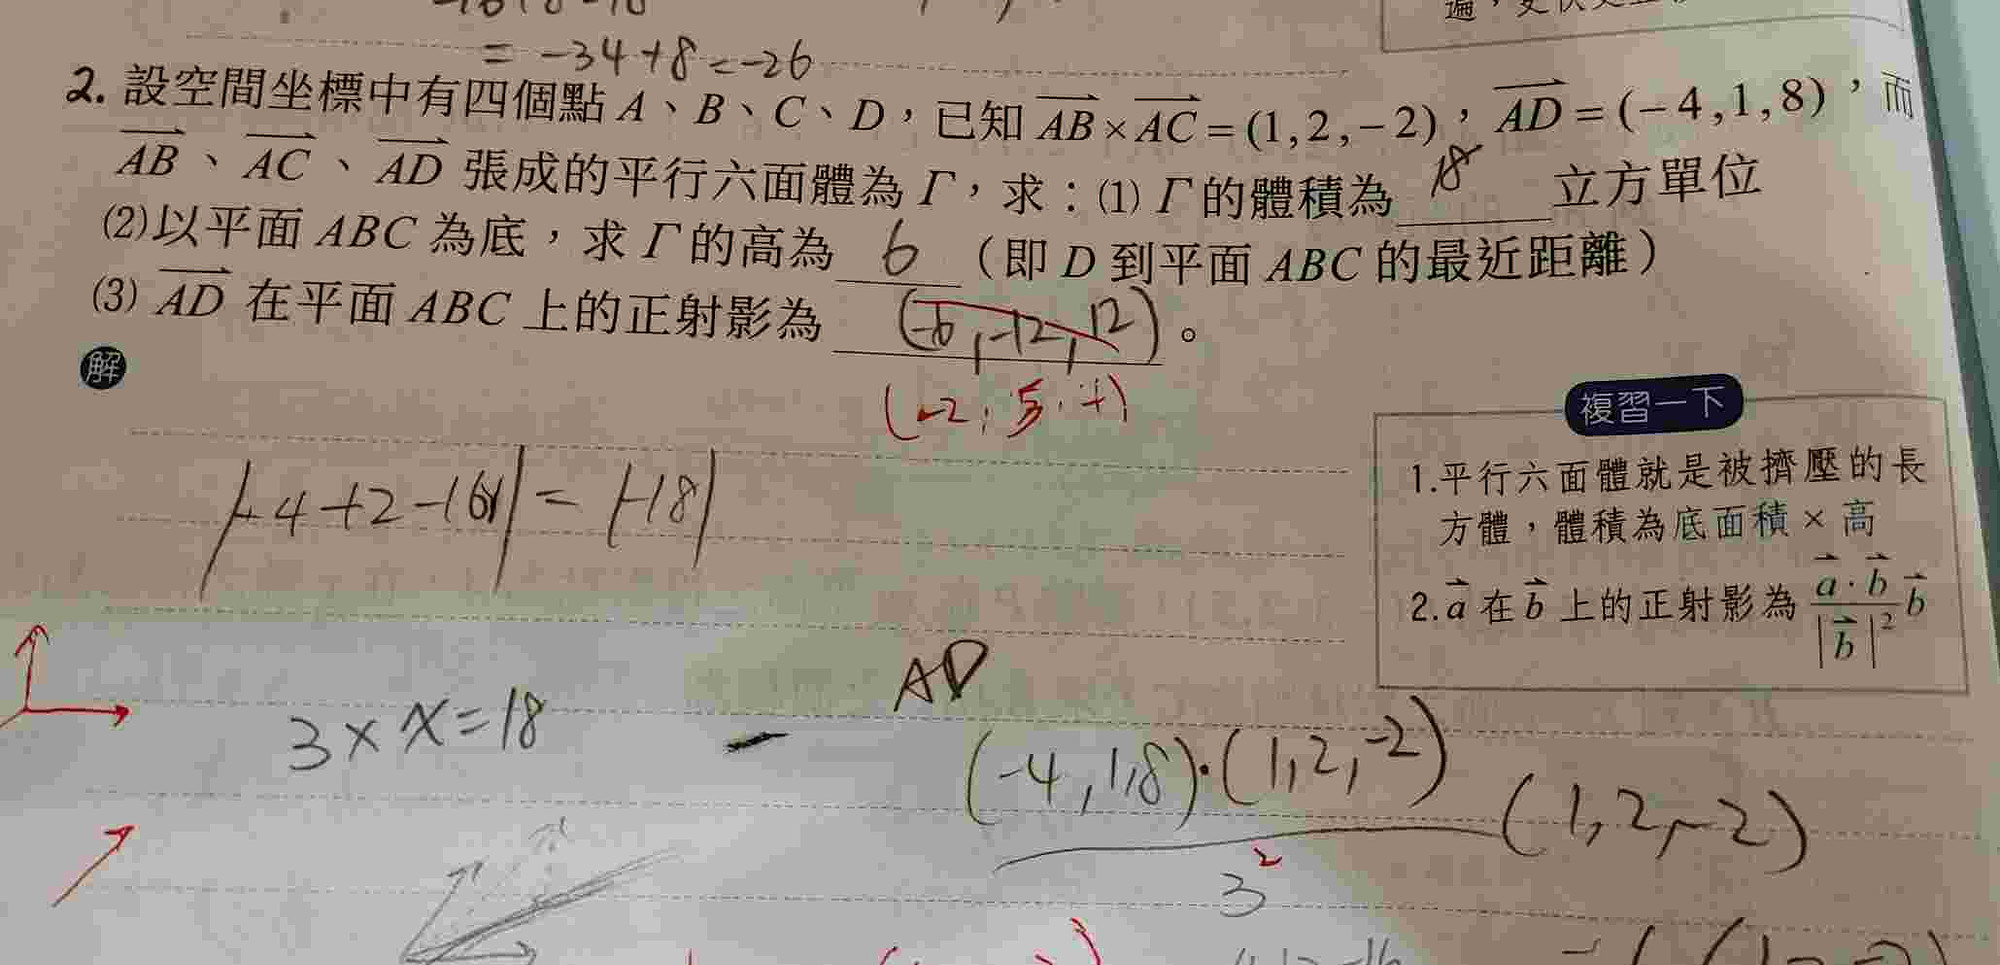 = -34+8=-26
2. 設空間坐標中有四個點 A、B、C、D，已知 AB×AC=(1,2,-2)，AD=(-4,1,8)，而
AB、AC、AD 張成的平行六面體為 Γ，求：(1) Γ 的體積為 18 立方單位
(2)以平面 ABC 為底，求 Γ 的高為 6 （即 D 到平面 ABC 的最近距離）
(3) AD 在平面 ABC 上的正射影為 (-6,-12,12)。
解
複習一下
1.平行六面體就是被擠壓的長
方體，體積為底面積×高
2.a 在 b 上的正射影為 a·b/|b|² b
|-4+2-16| = |-18|
3×x=18
AD
(-4,1,8)·(1,2,-2)
(1,2,-2)
3²